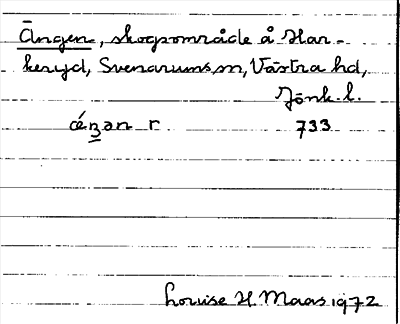 Ängen, skogsområde å Har-
keryd, Svenarums sn, Västra hd,
Jönk. l.
733
Louise H. Maas 1972